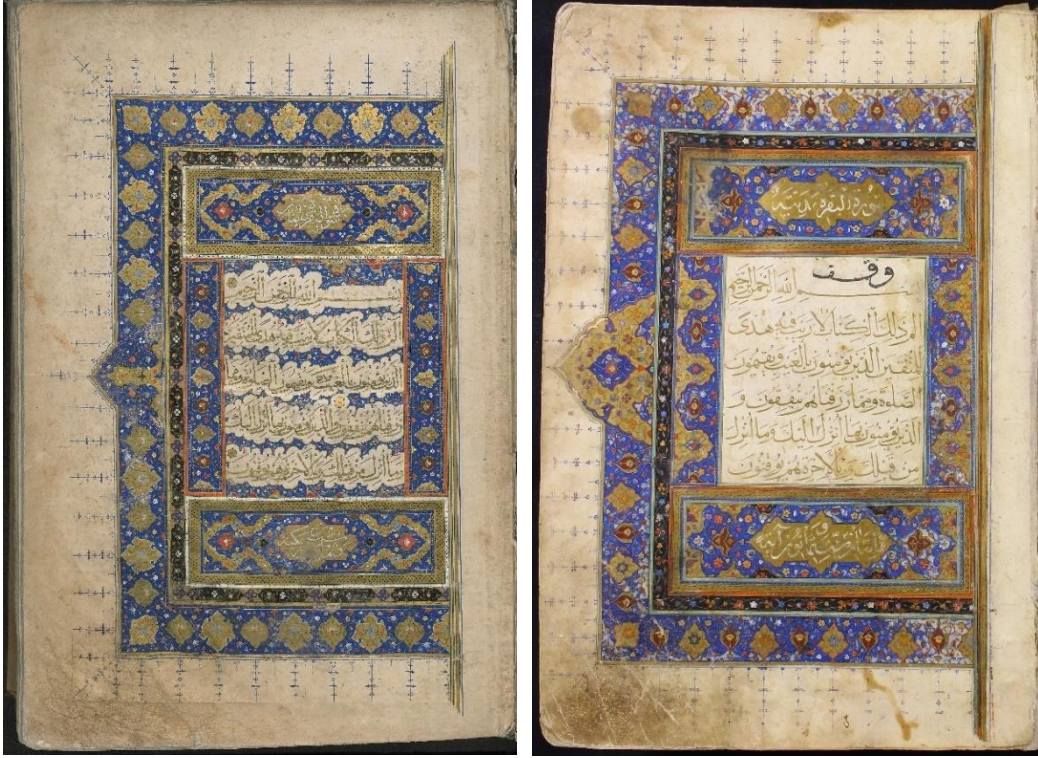 سورة البقرة مدنية
وقف
بسم الله الرحمن الرحيم
الم ذلك الكتاب لا ريب فيه هدى
للمتقين الذين يؤمنون بالغيب ويقيمون
الصلوة ومما رزقناهم ينفقون و
الذين يؤمنون بما انزل اليك وما انزل
من قبلك وبالآخرة هم يوقنون
بسم الله الرحمن الرحيم
الم ذلك الكتاب لا ريب فيه هدى للمتقين
الذين يؤمنون بالغيب ويقيمون الصلوة ومما
رزقناهم ينفقون والذين يؤمنون بما انزل اليك
وما انزل من قبلك وبالآخرة هم يوقنون